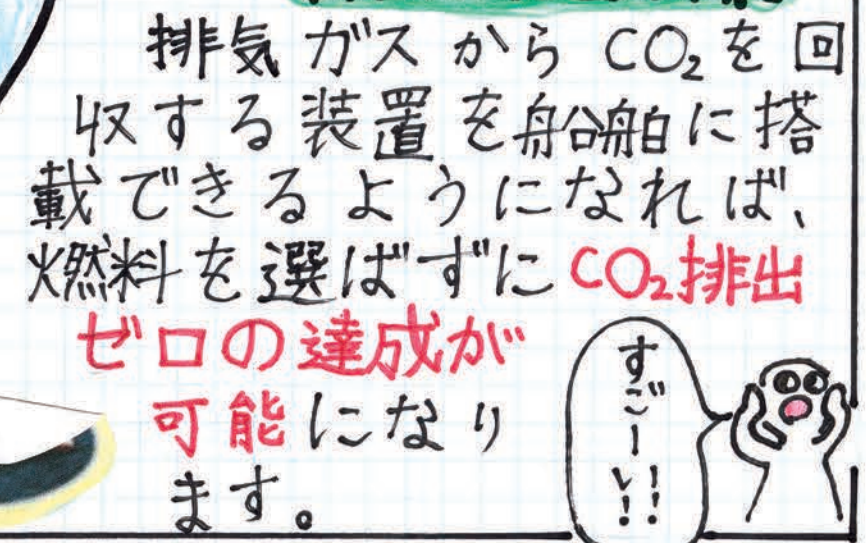 排気ガスからCO₂を回
収する装置を船舶に搭
載できるようになれば、
燃料を選ばずにCO₂排出
ゼロの達成が
可能になり
ます。
すごーい!!